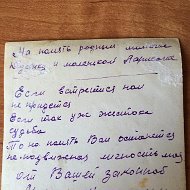 На память родным милым
и маленькой Ларисочке
Если встретится нам
не придется
Если так уже жестока
судьба
То на память Вам останется
неподвижная личность моя
от Вашей